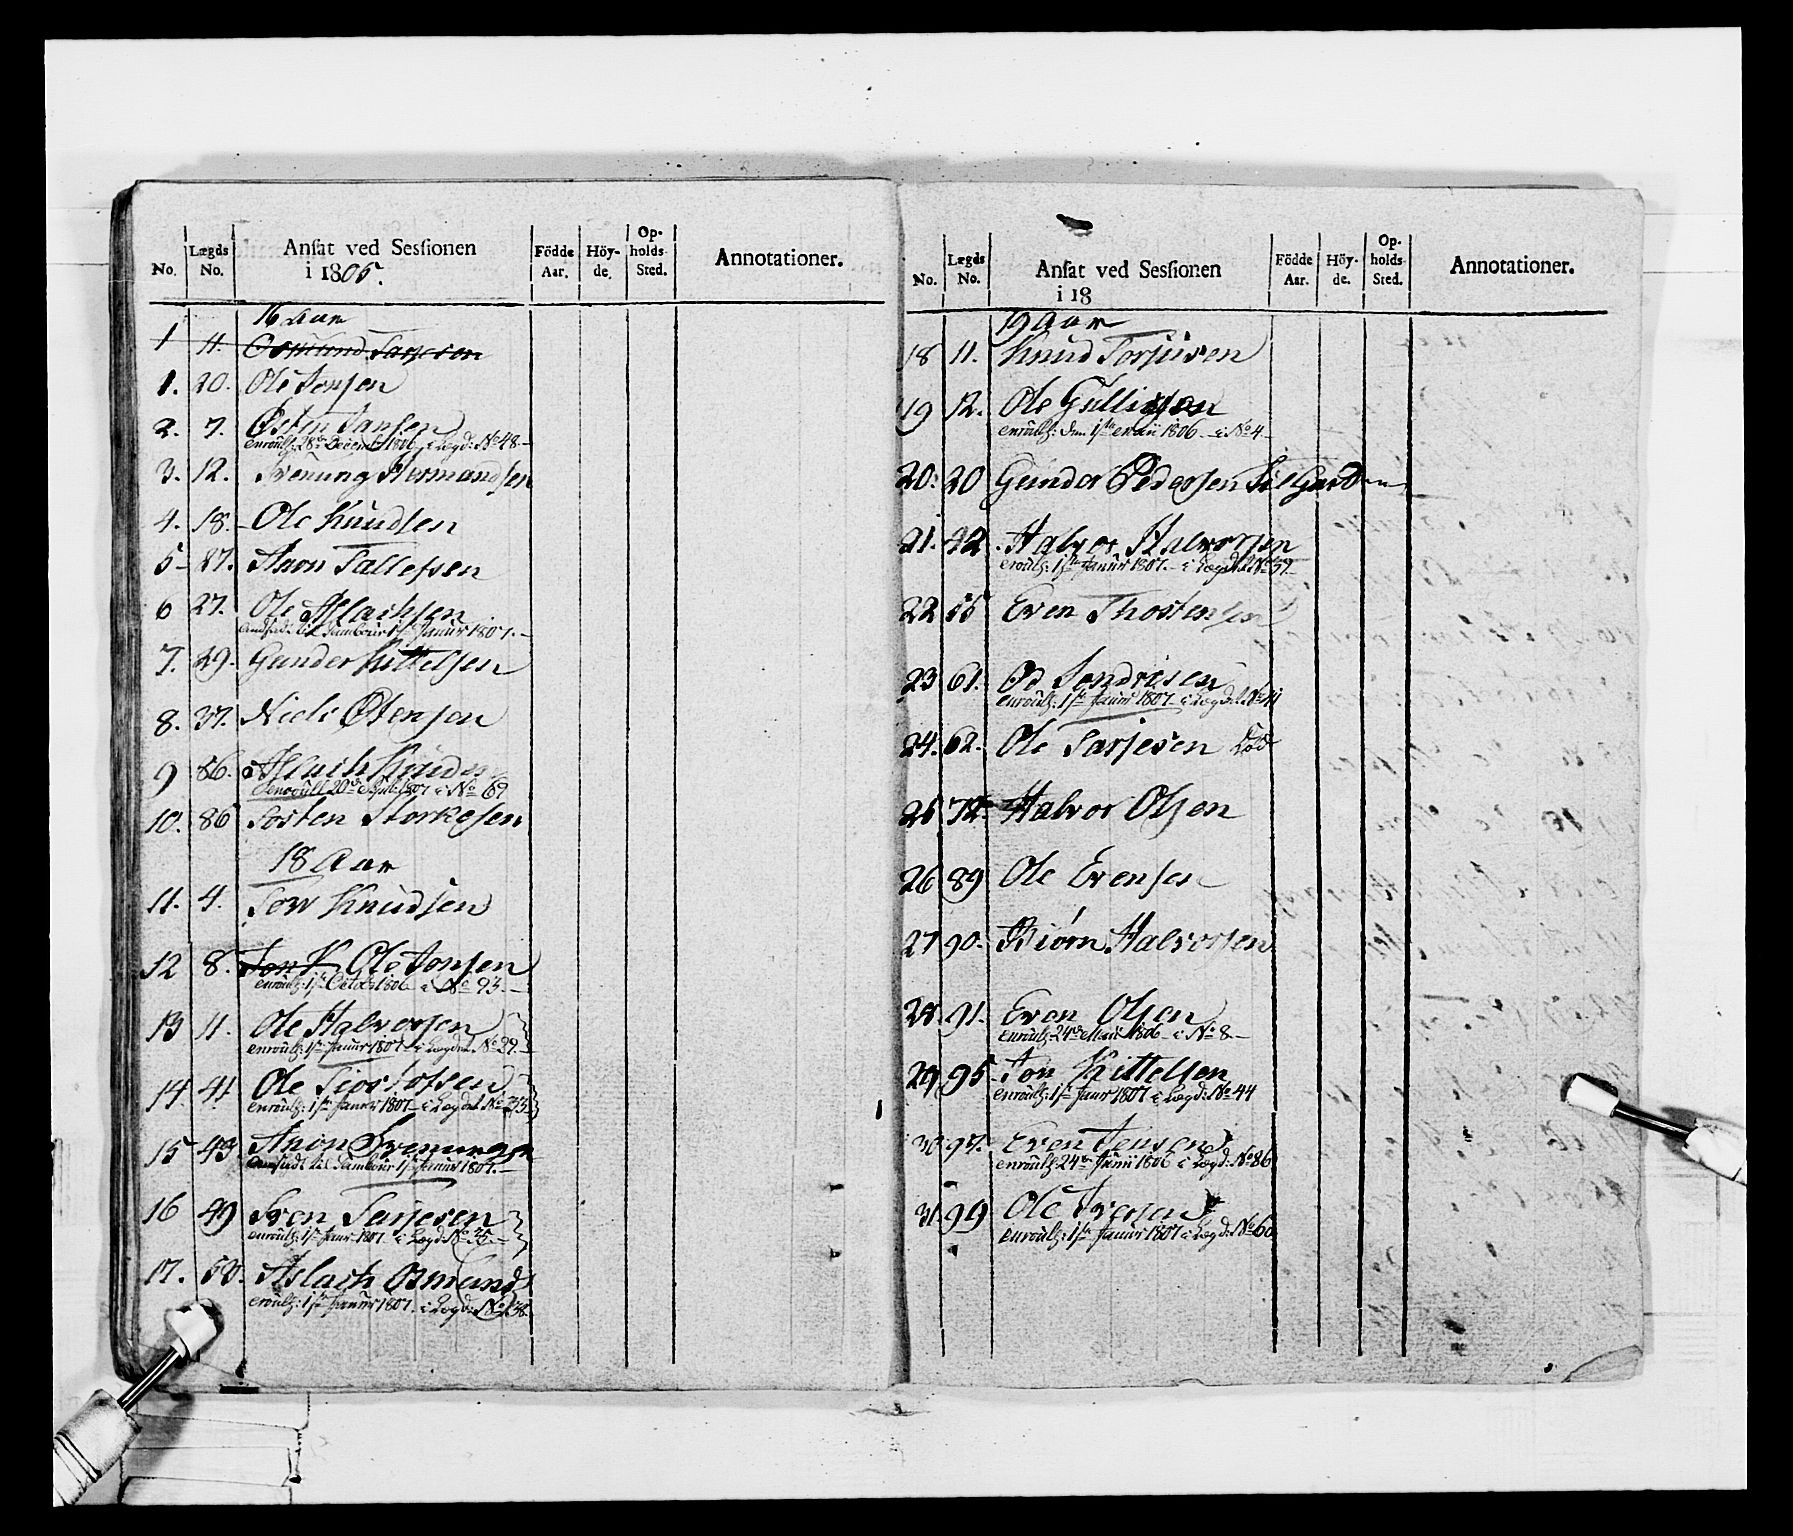 No. Lægds No. Ansat ved Sessionen i 1805. Födde Aar. Höyde. Opholds Sted. Annotationer.
16 Aar
1 11. Osmund Tarjeson
1. 20. Ole Jonsen
2. 7. Østen Jansen
enroull: 28de Decemb 1806 i Lægd: No 48.
3. 12. Svenung Hermandsen
4. 18. Ole Knudsen
5 87. Aron Tallefsen
6 27. Ole Aslachsen
Andsad: til Tambour 1ste Janur 1807.
7. 29. Gunder Kittelsen
8. 37. Niels Østensen
9 86. Aslach Knuds
enroull 20de Septb: 1807 i No 69
10. 86 Tosten Storkesen
18 Aar
11. 4. Tow Knudsen
12 8. Jon K Ole Jonsen
enroull: 1ste Octob 1806 i No 93.
13 11. Ole Halvorsen
enroull: 1ste Janur 1807 i Lægdet No 29.
14 41 Ole Tiostofsen
enroull: 1ste Janur 1807 i Lægdet No 33
15 43 Aron Svenungs
Ansadt til Tambour 1ste Janur 1807.
16 49 Sven Tarjesen
enroull: 1ste Janr 1807 i Lægd: No 35.
17. 50. Aslach Osmunds
enroull: 1ste Janur 1807. i Lægd: No 38.
No. Lægds No. Ansat ved Sessionen i 18 Födde Aar. Höyde. Opholds Sted. Annotationer.
19 Aar
18 11. Knud Torjusen
19 12. Ole Gulligsen
enroull: den 1ste 1806 i No 4
20. 20 Gunder Pedersen til Garden
21. 42. Halvor Halvorsen
enroull: 1ste Janur 1807. i Lægdet No 59.
22 55 Even Thostensen
23 61. Od Sondresen
enroull: 1ste Janur 1807 i Lægdet No 41
24. 62. Ole Tarjesen Død
25 72. Halvor Olsen
26 89 Ole Evensen
27 90. Biörn Halvorsen
28 91. Even Olsen
enroull: 24de 1806 i No 8
29 95 Jon Kittelsen
enroull: 1ste Janr 1807 i Lægd: No 44
30 97. Even Jensen
enroull: 24de Junii 1806 i Lægd: No 86
31 99 Ole Iversen
enroull: 1ste Janur 1807 i Lægd: No 60